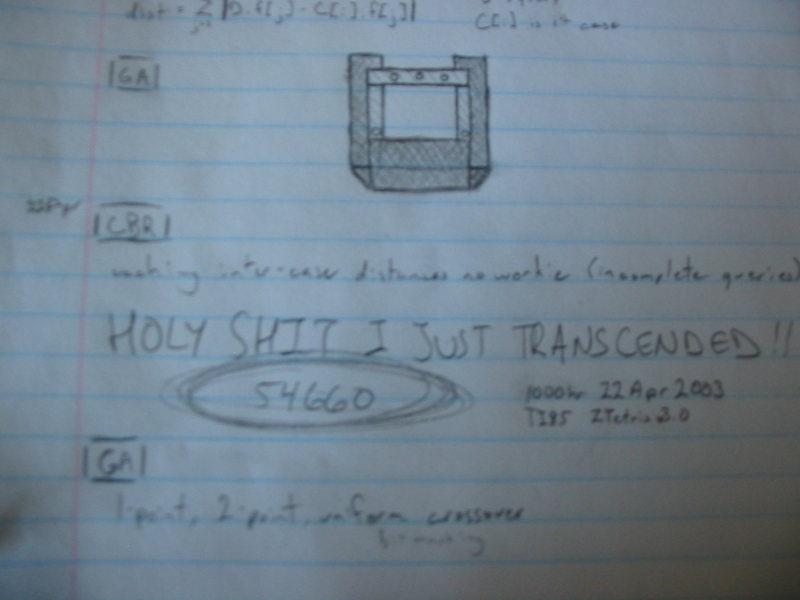 dist = Σ |D.f[j] - C[i].f[j]|
C[i] is ith case
GA
22 Apr
CBR
making inter-case distances no workie (incomplete queries)
HOLY SHIT I JUST TRANSCENDED!!
54660
1000hr 22 Apr 2003
TI85 ZTetris 3.0
GA
1-point, 2-point, uniform crossover
bit masking